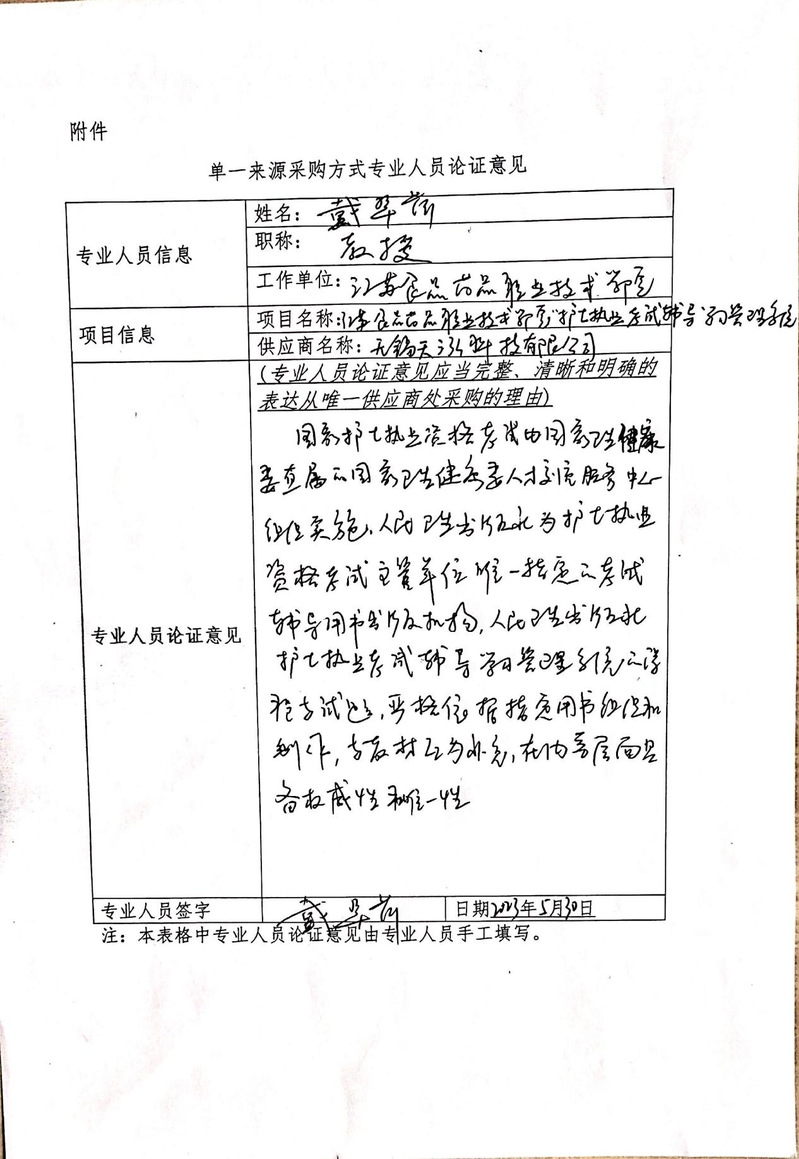 附件
单一来源采购方式专业人员论证意见
专业人员信息
姓名：戴翠萍
职称：教授
工作单位：江苏食品药品职业技术学院
项目信息
项目名称：江苏食品药品职业技术学院"护士执业考试辅导"学习管理系统
供应商名称：无锡天泓科技有限公司
专业人员论证意见
(专业人员论证意见应当完整、清晰和明确的
表达从唯一供应商处采购的理由)
国家护士执业资格考试由国家卫生健康
委直属的国家卫生健康委人才交流服务中心
组织实施，人民卫生出版社为护士执业
资格考试主管单位唯一指定的考试
辅导用书出版机构，人民卫生出版社
护士执业考试辅导学习管理系统的课
程与试题，严格依据指定用书组织和
制作，与教材互为补充，在内容层面具
备权威性和唯一性
专业人员签字
戴翠萍
日期2023年5月30日
注：本表格中专业人员论证意见由专业人员手工填写。